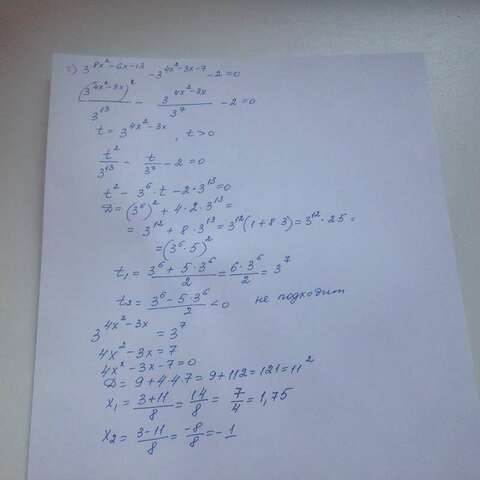 2) 3^{8x²-6x-13} - 3^{4x²-3x-7} - 2 = 0
(3^{4x²-3x})²/3^{13} - 3^{4x²-3x}/3^7 - 2 = 0
t = 3^{4x²-3x}, t > 0
t²/3^{13} - t/3^7 - 2 = 0
t² - 3^6 · t - 2 · 3^{13} = 0
D = (3^6)² + 4 · 2 · 3^{13} =
= 3^{12} + 8 · 3^{13} = 3^{12}(1 + 8 · 3) = 3^{12} · 25 =
= (3^6 · 5)²
t₁ = (3^6 + 5 · 3^6)/2 = (6 · 3^6)/2 = 3^7
t₂ = (3^6 - 5 · 3^6)/2 < 0 не подходит
3^{4x²-3x} = 3^7
4x² - 3x = 7
4x² - 3x - 7 = 0
D = 9 + 4·4·7 = 9 + 112 = 121 = 11²
x₁ = (3+11)/8 = 14/8 = 7/4 = 1,75
x₂ = (3-11)/8 = -8/8 = -1